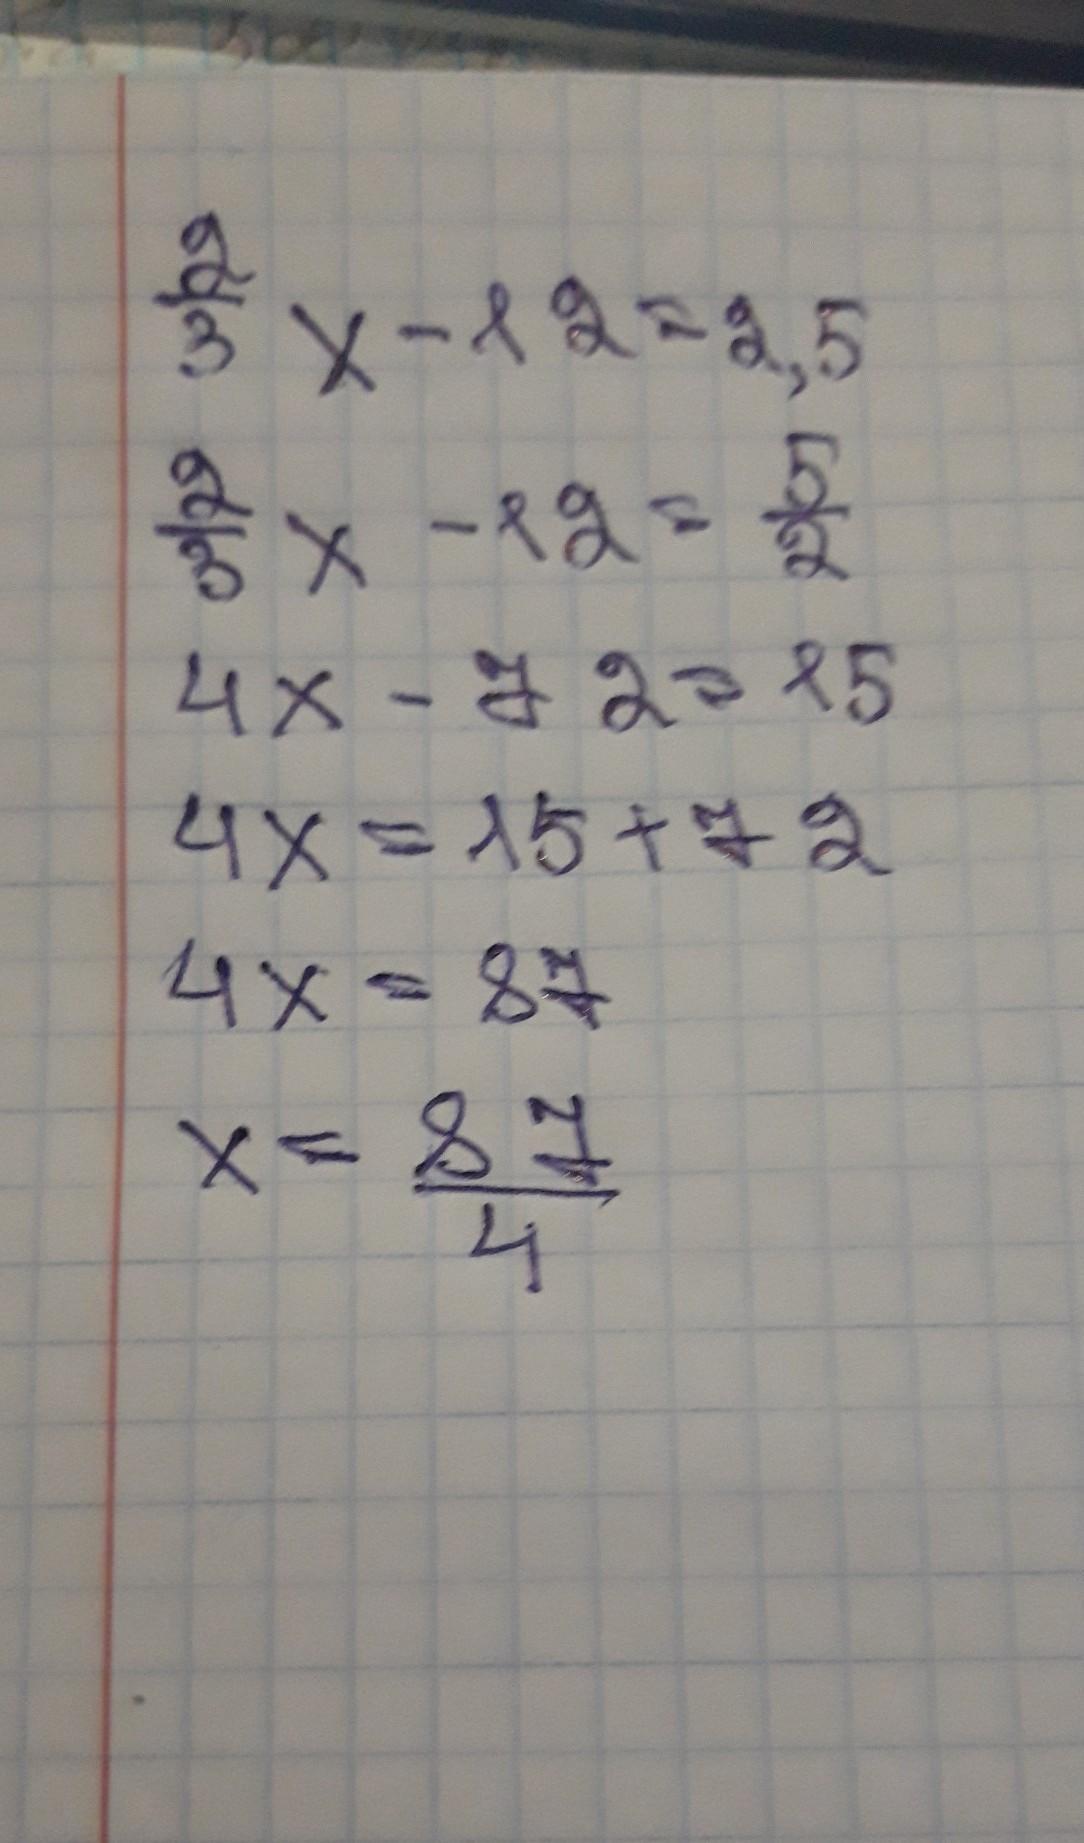 2/3 x - 12 = 2,5
2/3 x - 12 = 5/2
4x - 72 = 15
4x = 15 + 72
4x = 87
x = 87/4